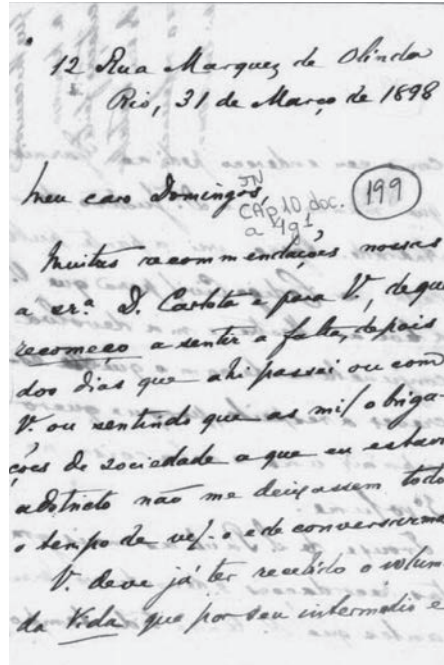 12 Rua Marquez de Olinda
Rio, 31 de Março de 1898
Meu caro Domingos,
JN
CAp10, doc.
a 491
199
Muitas recommendações nossas
a sr.ª D. Carlota e para V., de que
recomeço a sentir a falta, depois
dos dias que ahi passei ou com
V. ou sentindo que as mil obriga-
ções de sociedade a que eu estava
adstricto não me deixassem todo
o tempo de vel-o e de conversarmos
V. deve já ter recebido o volum
da Vida que por seu intermedio e